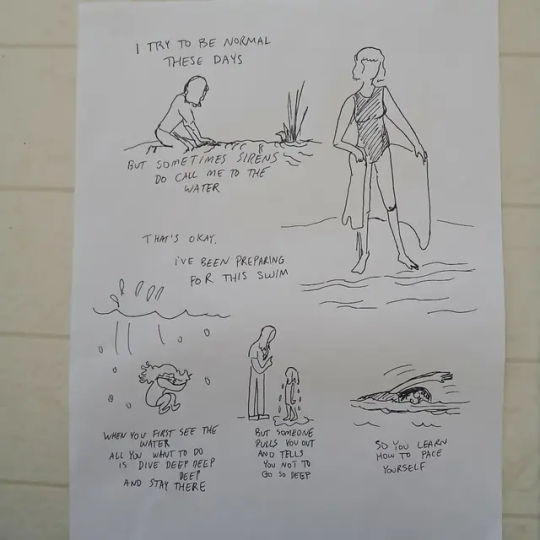 I TRY TO BE NORMAL
THESE DAYS
BUT SOMETIMES SIRENS
DO CALL ME TO THE
WATER
THAT'S OKAY.
I'VE BEEN PREPARING
FOR THIS SWIM
WHEN YOU FIRST SEE THE
WATER
ALL YOU WANT TO DO
IS DIVE DEEP DEEP
DEEP
AND STAY THERE
BUT SOMEONE
PULLS YOU OUT
AND TELLS
YOU NOT TO
GO SO DEEP
SO YOU LEARN
HOW TO PACE
YOURSELF